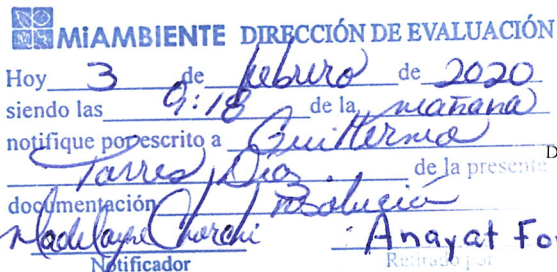 MIAMBIENTE DIRECCIÓN DE EVALUACIÓN
Hoy 3 de febrero de 2020
siendo las 9:18 de la mañana
notifique por escrito a Guillermo
Torres Díaz. de la presente
documentación Resolución
Notificador Retirado por